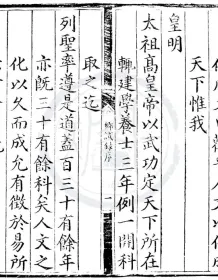 天下惟我
皇明
太祖高皇帝以武功定天下所在
輒建學養士三年例一開科
錄序
一
取之迄
列聖率導是道蓋百三十有餘年
亦既三十有餘科矣人文之
化以久而成允有徵於易所